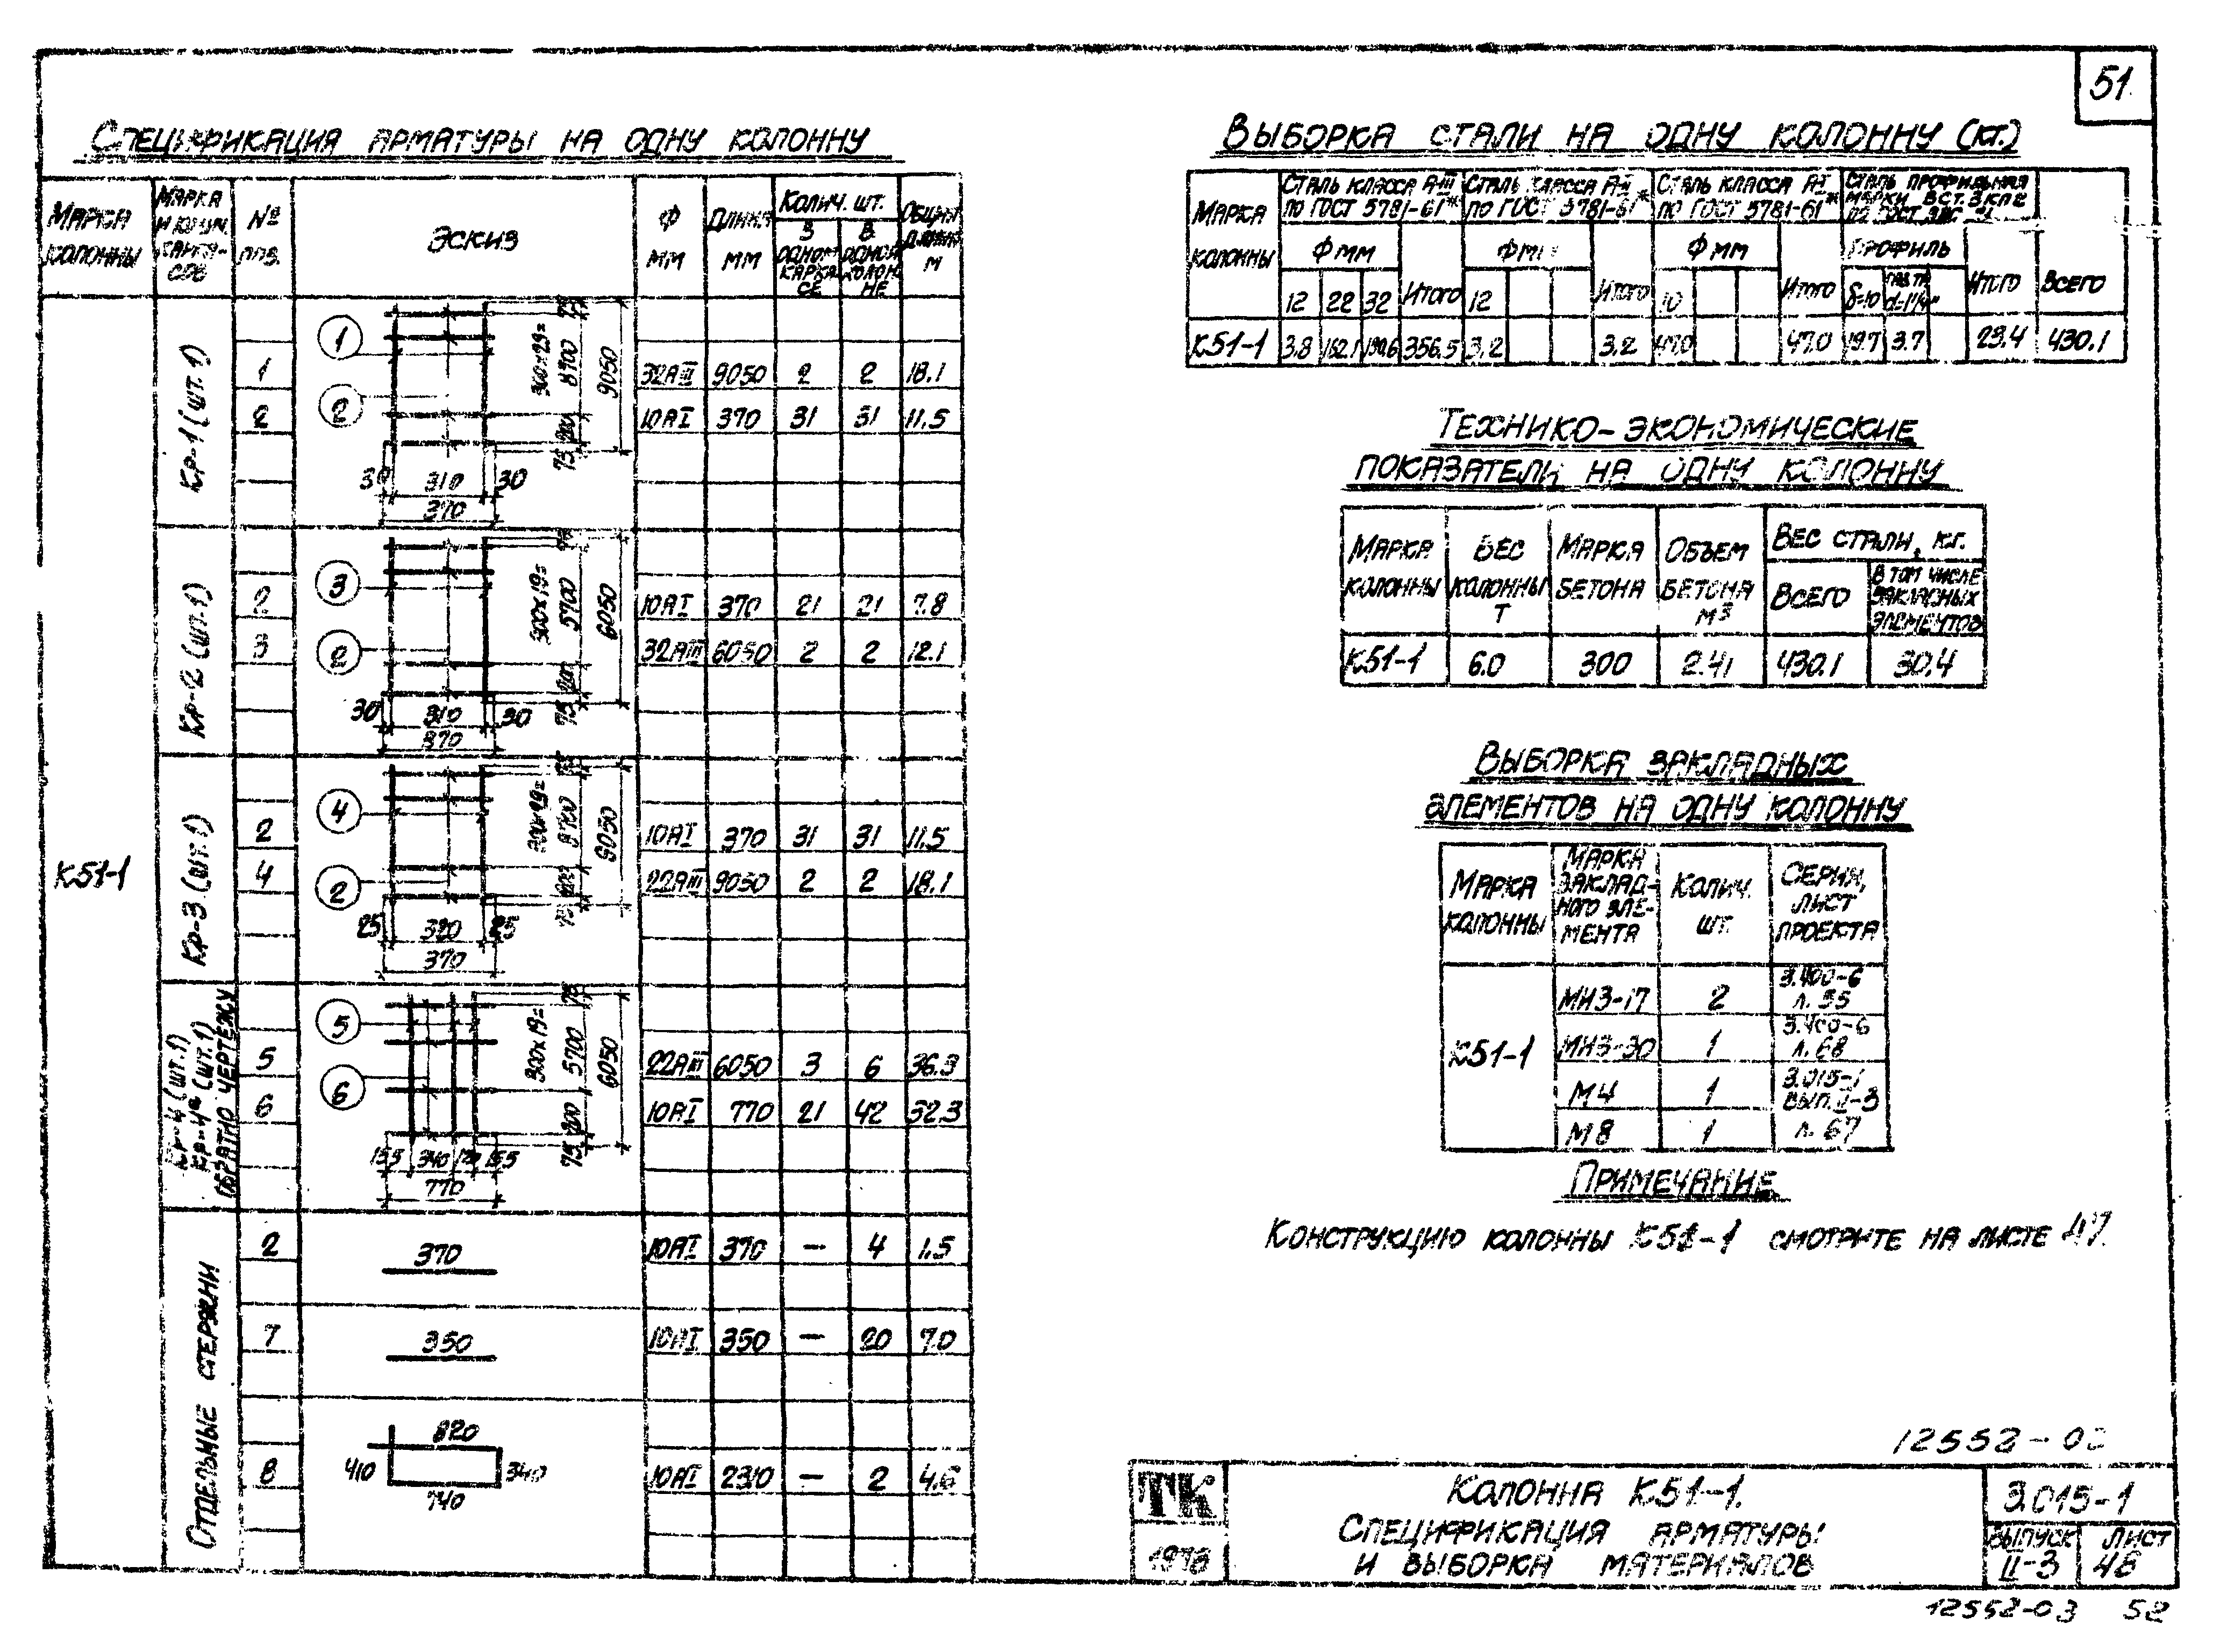 51
Спецификация арматуры на одну колонну
Марка колонны
№ поз.
Эскиз
Ф мм
Длина мм
Колич. шт.
В одном каркасе
В одной колонне
Общая длина м
К51-1
Кр-1 (шт. 1)
1 2
30 310 30
370
300х29=
8700
200
75
9050
1 32АIII 9050 2 2 18.1
2 10АI 370 31 31 11.5
Кр-2 (шт. 1)
3 2
30 310 30
370
300х19=
5700
200
75
6050
2 10АI 370 21 21 7.8
3 32АIII 6050 2 2 12.1
Кр-3 (шт. 1)
4 2
25 320 25
370
300х29=
8700
200
75
9050
2 10АI 370 31 31 11.5
4 22АIII 9050 2 2 18.1
Кр-4 (шт. 1)
Кр-4а (шт. 1)
обратно чертежу
5 6
155 340 120 155
770
75
300х19=
5700
200
75
6050
5 22АIII 6050 3 6 36.3
6 10АI 770 21 42 32.3
Отдельные стержни
2 370 10АI 370 — 4 1.5
7 350 10АI 350 — 20 7.0
820
410 340
740
8 10АI 2310 — 2 4.6
Выборка стали на одну колонну (кг.)
Марка колонны
Сталь класса А-III по ГОСТ 5781-61*
Сталь класса А-II по ГОСТ 5781-61*
Сталь класса А-I по ГОСТ 5781-61*
Сталь профильная марки В ст. 3 кп 2
Ф мм Ф мм Ф мм Профиль
12 22 32 Итого 12 Итого 10 Итого δ=10 d=1¼" Итого Всего
К51-1 3.8 162.1 190.6 356.5 3.2 3.2 47.0 47.0 19.7 3.7 23.4 430.1
Технико-экономические
показатели на одну колонну
Марка колонны
Вес колонны т
Марка бетона
Объем бетона м³
Вес стали, кг.
Всего
В том числе закладных элементов
К51-1 6.0 300 2.41 430.1 30.4
Выборка закладных
элементов на одну колонну
Марка колонны
Марка закладного элемента
Колич. шт.
Серия, лист проекта
К51-1
МН3-17 2 3.400-6 л. 55
МН3-30 1 3.400-6 л. 68
М4 1 3.015-1 вып. II-3
М8 1 л. 67
Примечание
Конструкцию колонны К51-1 смотрите на листе 47.
ТК
1978
Колонна К51-1.
Спецификация арматуры
и выборка материалов
3.015-1
Выпуск II-3
Лист 48
12552-03 52